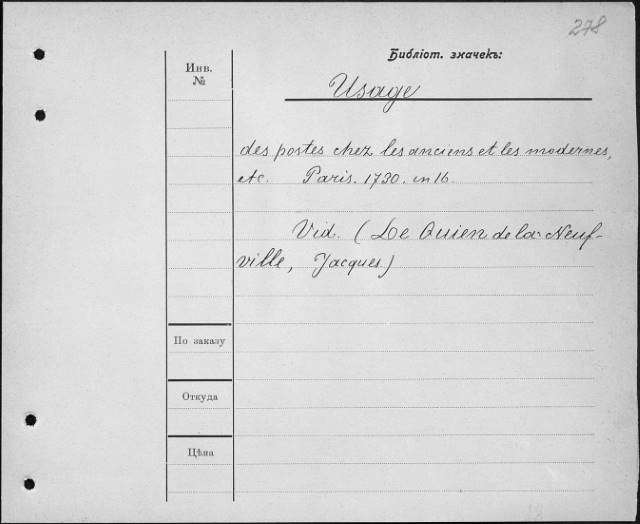 278
Библіот. значекъ:
Инв.
№
Usage
des postes chez les anciens et les modernes,
etc. Paris. 1730. in 16.
Vid. (Le Quien de la Neuf-
ville, Jacques)
По заказу
Откуда
Цѣна